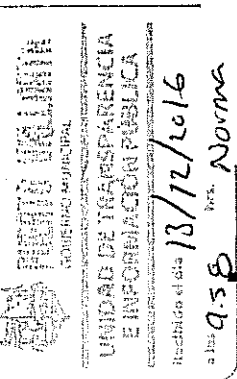 PUERTO VALLARTA
GOBIERNO MUNICIPAL
UNIDAD DE TRANSPARENCIA
E INFORMACIÓN PÚBLICA
Recibido el día 13/12/2016
a las 9:58 hrs. Norma